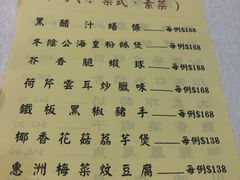 菜式、素菜)
黑醋汁蟮條____每例$168
冬陰公海皇粉絲煲____每例$168
芥香脆蝦球____每例$168
荷芹雲耳炒臘味____每例$168
鐵板黑椒豬手____每例$168
椰香花菇荔芋煲____每例$138
惠洲梅菜炆豆腐____每例$138